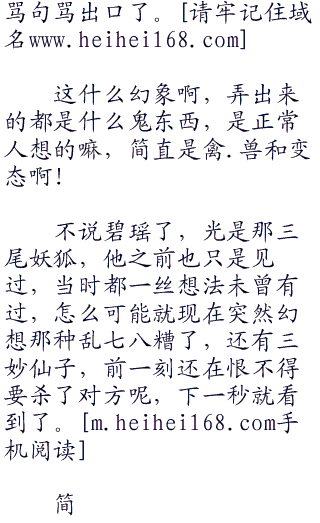 骂句骂出口了。[请牢记住域
名www.heihei168.com]
这什么幻象啊，弄出来
的都是什么鬼东西，是正常
人想的嘛，简直是禽.兽和变
态啊！
不说碧瑶了，光是那三
尾妖狐，他之前也只是见
过，当时都一丝想法未曾有
过，怎么可能就现在突然幻
想那种乱七八糟了，还有三
妙仙子，前一刻还在恨不得
要杀了对方呢，下一秒就看
到了。[m.heihei168.com手
机阅读]
简